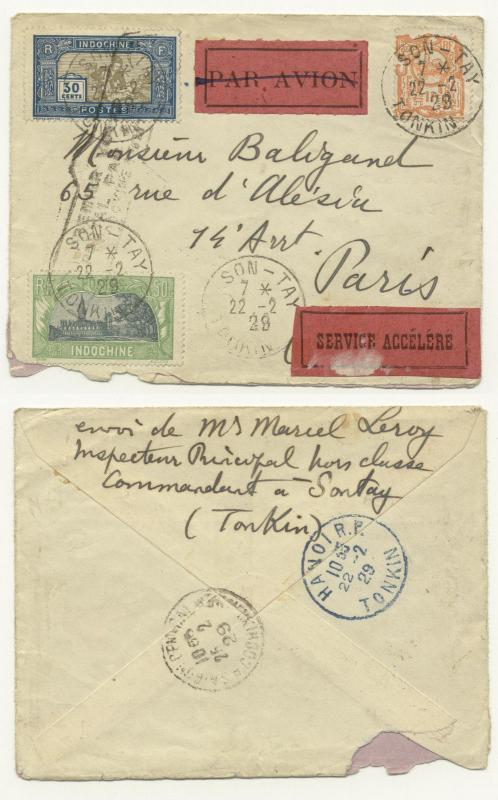 R F
INDOCHINE
30
CENTS
POSTES
PAR AVION
SON-TAY
7 *
22-2
29
TONKIN
Monsieur Baligand
65 rue d'Alésia
14e Arrt
Paris
SON-TAY
7 *
22-2
29
TONKIN
SON-TAY
7 *
22-2
29
TONKIN
INDOCHINE
SERVICE ACCÉLÉRÉ
envoi de Mr Marcel Leroy
Inspecteur Principal hors classe
Commandant à Sontay
(Tonkin)
HANOI R.P.
22-2
29
TONKIN
25
2
29